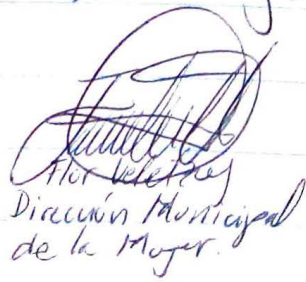 Flor
Dirección Municipal
de la Mujer.